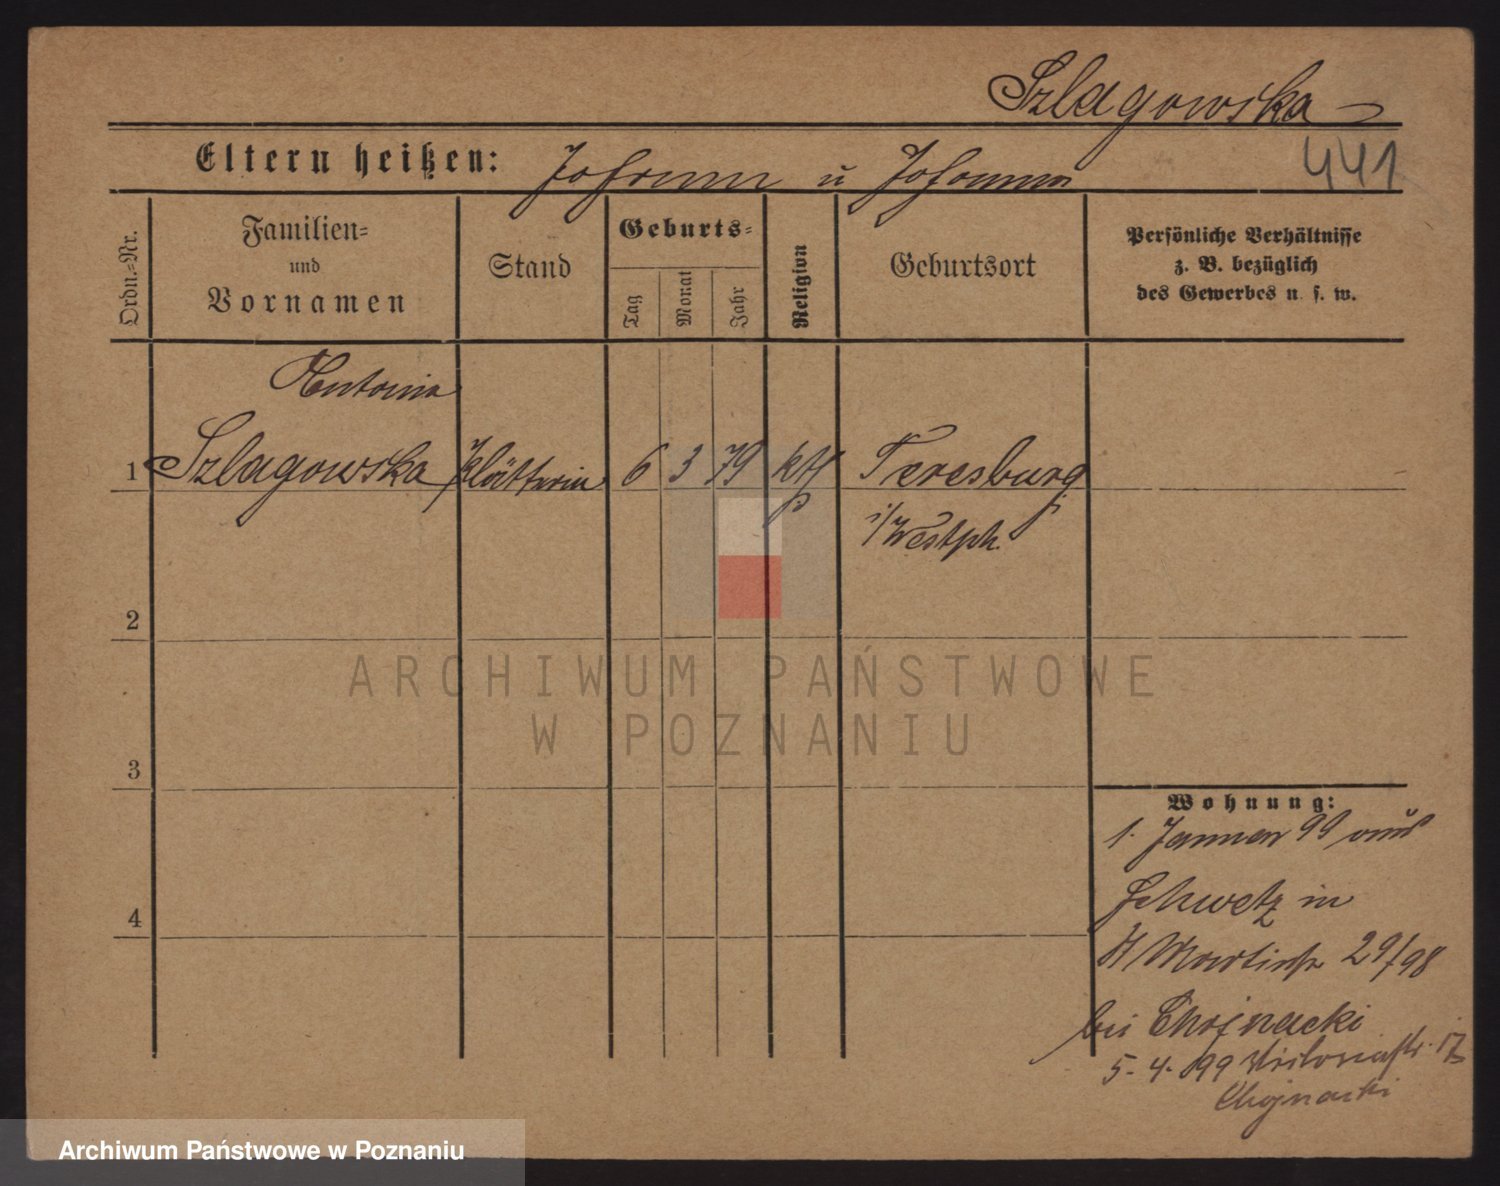 Szlagowska
Eltern heißen: Johann u Johanna
441
Ordn.-Nr.
Familien-
und
Vornamen
Stand
Geburts-
Tag
Monat
Jahr
Religion
Geburtsort
Persönliche Verhältnisse
z. B. bezüglich
des Gewerbes u. s. w.
Antonia
1 Szlagowska Plätterin 6 3 79 kth Teresburg
i/Westph.
2
ARCHIWUM PAŃSTWOWE
W POZNANIU
3
Wohnung:
1. Januar 99 aus
Schwetz in
St Martinstr 29/98
bei Chojnacki
5. 4. 99 Victoriastr. 17
Chojnacki
4
Archiwum Państwowe w Poznaniu